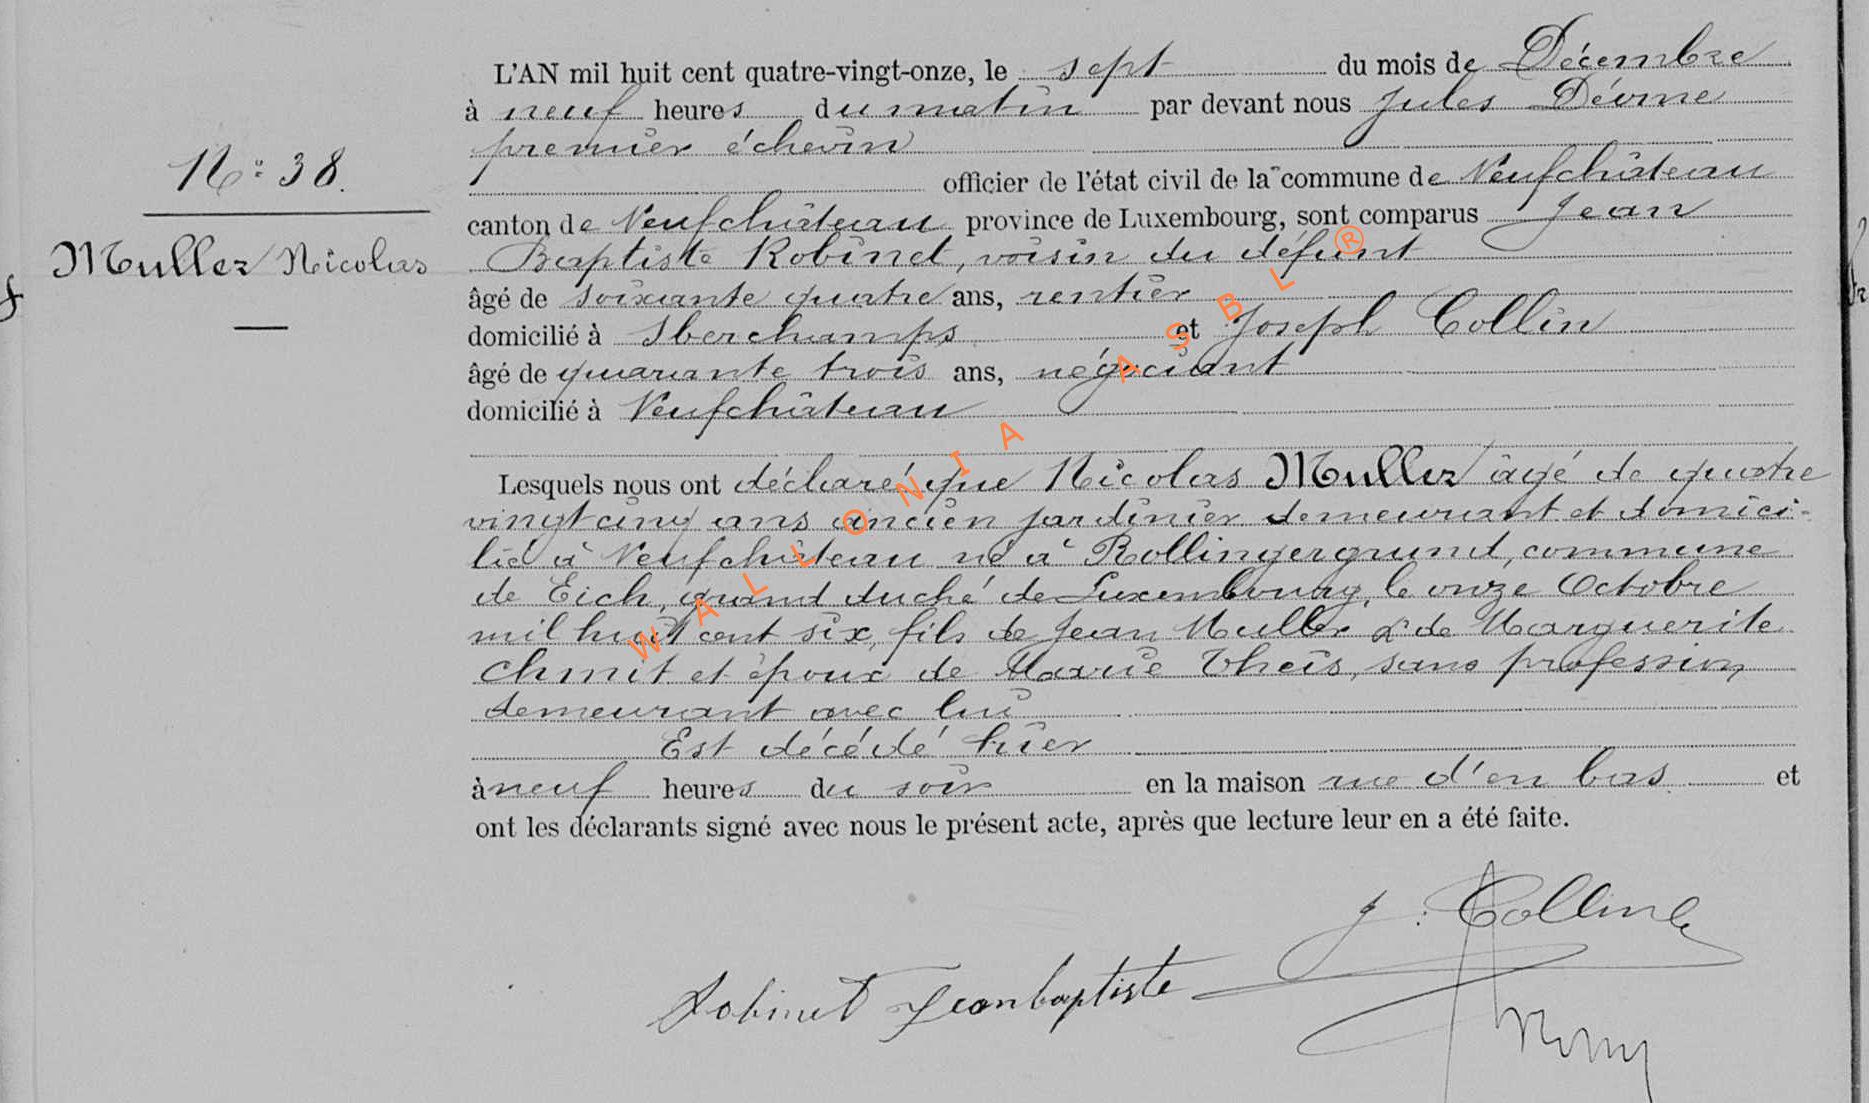 L'AN mil huit cent quatre-vingt-onze, le sept du mois de Décembre
à neuf heures du matin par devant nous Jules
premier échevin
officier de l'état civil de la commune de Neufchâteau
canton de Neufchâteau province de Luxembourg, sont comparus Jean
Baptiste Robinet, voisin du défunt
âgé de soixante quatre ans, rentier
domicilié à et Joseph Collin
âgé de quarante trois ans, négociant
domicilié à Neufchâteau
Lesquels nous ont déclaré que Nicolas Muller âgé de quatre
vingt cinq ans ancien jardinier demeurant et domici-
lié à Neufchâteau né à Rollingergrund, commune
de Eich, grand duché de Luxembourg, le onze Octobre
mil huit cent six, fils de Jean Muller & de Marguerite
Chmit et époux de Marie Theis, sans profession
demeurant avec lui
Est décédé hier
à neuf heures du soir en la maison rue d'en bas et
ont les déclarants signé avec nous le présent acte, après que lecture leur en a été faite.
N° 38.
Muller Nicolas
J. Collin
Robinet Jeanbaptiste
WALLONIA ASBL ®